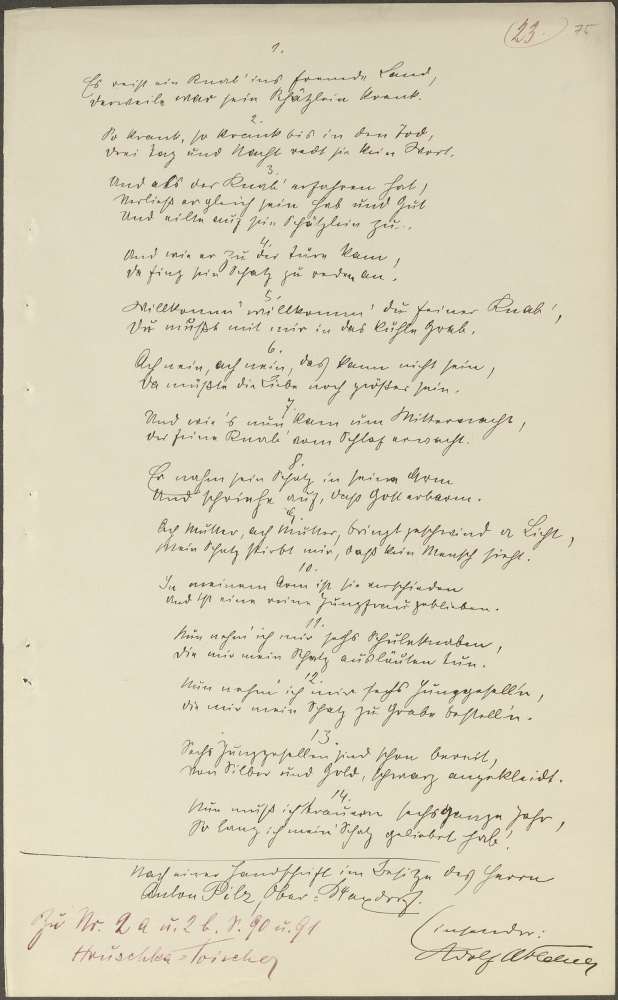 (23.) 75
1.
Es reist ein Knab' ins fremde Land,
Derweile war sein Schätzlein krank.
2.
So krank, so krank bis in den Tod,
Drei Tag und Nacht redt sie kein Wort.
3.
Und als der Knab' erfahren hat,
Verließ er gleich sein Hab und Gut
Und eilte auf sein Schätzlein zu.
4.
Und wie er zu der Türe kam,
Da fing sein Schatz zu reden an.
5.
Willkomm' willkomm' du feiner Knab',
Du mußt mit mir in das kühle Grab.
6.
Ach nein, ach nein, das kann nicht sein,
Da müßte die Liebe noch größer sein.
7
Und wie's nun kam um Mitternacht,
Der feine Knab' vom Schlaf erwacht.
8.
Er nahm sein Schatz in seinen Arm
Und schrie auf, daß Gott erbarm.
9.
Ach Mutter, ach Mutter, bringt geschwind a Licht,
Mein Schatz stirbt mir, daß kein Mensch sieht.
10.
In meinem Arm ist sie verschieden
Und ist eine reine Jungfrau geblieben.
11.
Nun nehm' ich mir sechs Schulknaben,
Die mir mein Schatz ausläuten tun.
12.
Nun nehm' ich mir sechs Junggesell'n,
Die mir mein Schatz zu Grabe bestell'n.
13.
Sechs Junggesellen sind schon bereit,
Von Silber und Gold, schwarz angekleidt.
14.
Nun muß ich trauern sechs ganze Jahr,
So lang ich mein' Schatz geliebet hab'.
Nach einer Handschrift im Besitze des Herrn
Anton Pilz, Ober-
Einsender:
Adolf
Zu Nr. 2a u. 2b. S. 90 u. 91
Hruschka-Toischer